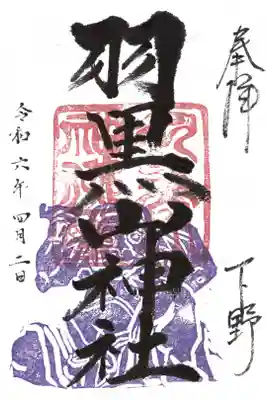 奉拝
下野
羽黒山神社
令和六年四月二日